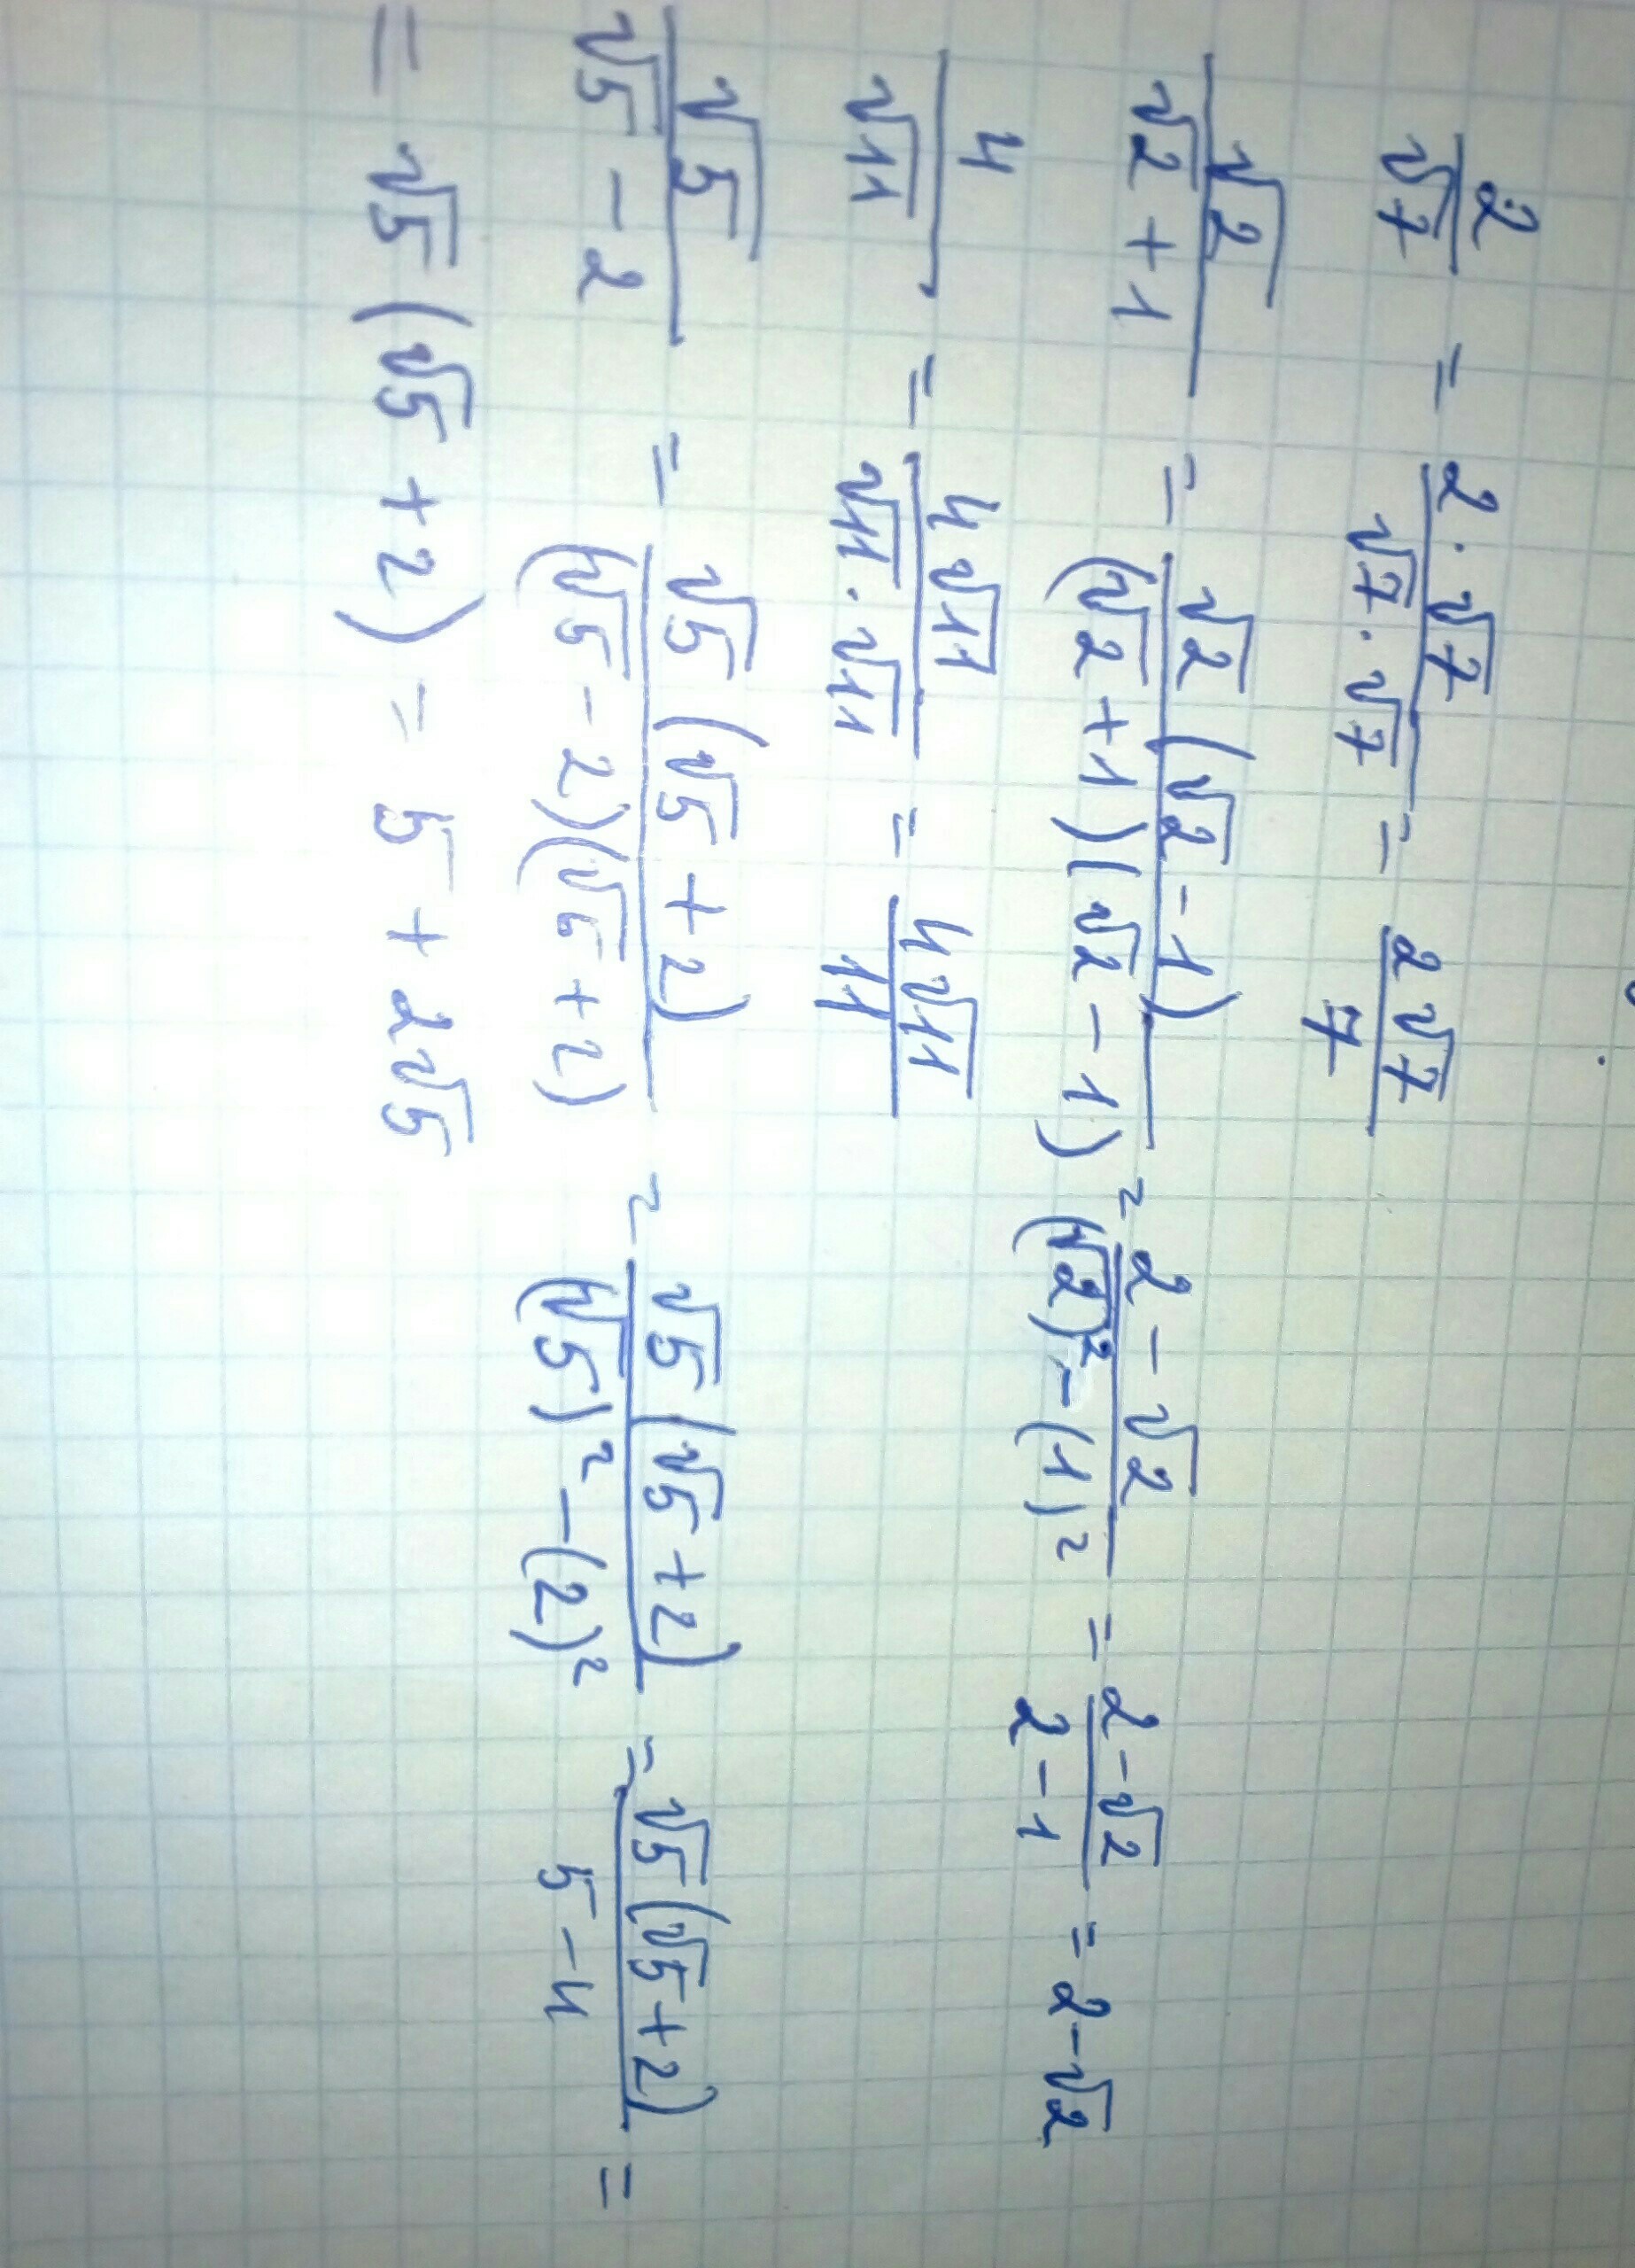 2/√7 = 2·√7/√7·√7 = 2√7/7
√2/√2+1 = √2(√2-1)/(√2+1)(√2-1) = 2-√2/(√2)²-(1)² = 2-√2/2-1 = 2-√2
4/√11 = 4√11/√11·√11 = 4√11/11
√5/√5-2 = √5(√5+2)/(√5-2)(√5+2) = √5(√5+2)/(√5)²-(2)² = √5(√5+2)/5-4 =
= √5(√5+2) = 5+2√5